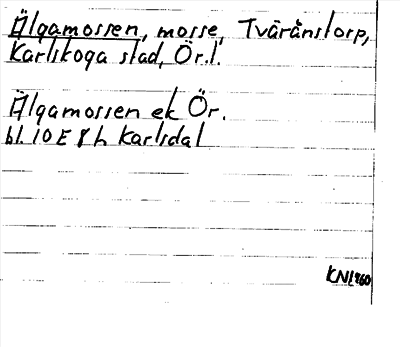 Älgamossen, mosse, Tväränstorp,
Karlskoga stad, Ör.l.
Älgamossen ek Ör.
bl. 10 E 8 h Karlsdal
KN1960